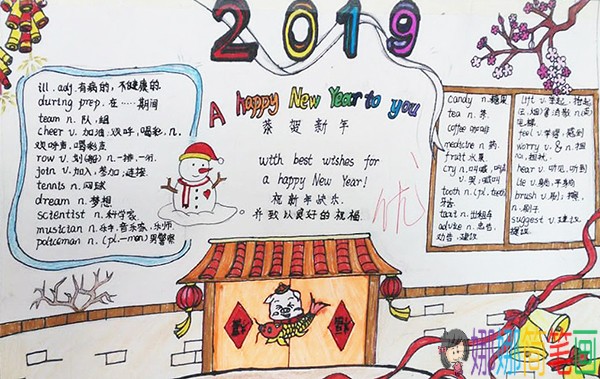 2019
A happy New Year to you
恭贺新年
with best wishes for
a happy New Year!
祝新年快乐
并致以良好的祝福.
ill . adj. 有病的, 不健康的.
during prep. 在……期间
team n. 队, 组
cheer v. 加油, 欢呼, 喝彩, n.
欢呼声, 喝彩声
row v. 划(船) n. 一排, 一列.
join v. 加入, 参加, 连接.
tennis n. 网球
dream n. 梦想
scientist n. 科学家
musician n. 乐手, 音乐家, 乐师.
policeman n. (pl. -men) 男警察
candy n. 糖果
tea n. 茶
coffee n.
medicine n. 药
fruit 水果
cry n. 叫喊, 叫声
v. 哭, 喊叫
tooth n. (pl. teeth)
牙齿
taxi n. 出租车
advice n. 忠告,
劝告, 建议
lift v. 举起, 抬起
n. 电梯
feel v. 学得, 感到
worry v. & n. 担
心, 担忧.
hear v. 听见, 听到
lie v. 躺, 平躺
brush v. 刷, 擦,
n. 刷子.
suggest v. 建议,
提议.
优
福
福
娜娜简笔画